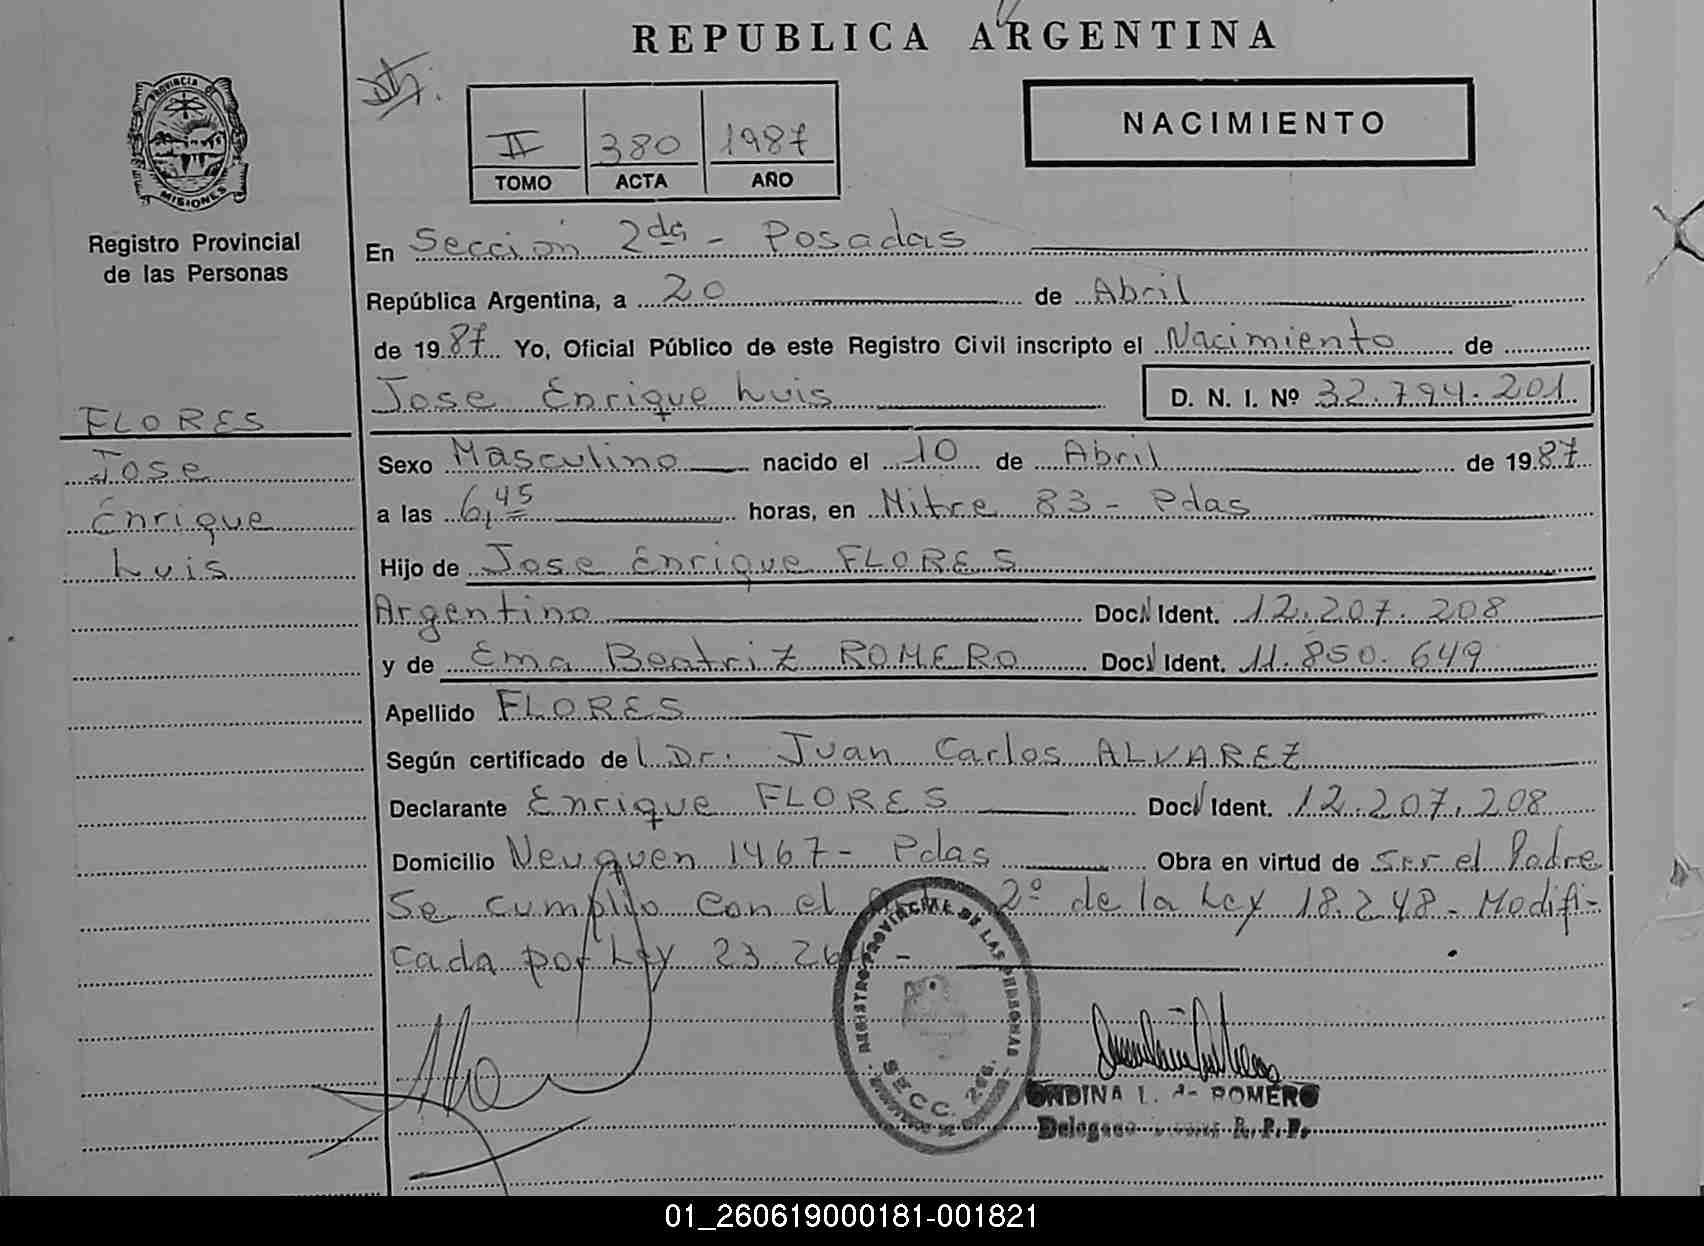 REPUBLICA ARGENTINA
PROVINCIA DE
MISIONES
Registro Provincial
de las Personas
II 380 1987
TOMO ACTA AÑO
NACIMIENTO
En Seccion 2da - Posadas
República Argentina, a 20 de Abril
de 1987 Yo, Oficial Público de este Registro Civil inscripto el Nacimiento de
Jose Enrique Luis D. N. I. Nº 32.794.201
FLORES
Jose
Enrique
Luis
Sexo Masculino nacido el 10 de Abril de 1987
a las 6,45 horas, en Mitre 83 - Pdas
Hijo de Jose Enrique FLORES
Argentino Doc. Ident. 12.207.208
y de Ema Beatriz ROMERO Doc. Ident. 11.850.649
Apellido FLORES
Según certificado de Dr. Juan Carlos ALVAREZ
Declarante Enrique FLORES Doc. Ident. 12.207.208
Domicilio Neuquen 1467 - Pdas Obra en virtud de ser el Padre
Se cumplio con el 2º de la Ley 18.248 - Modifi-
cada por Ley 23.26 -
REGISTRO PROVINCIAL DE LAS PERSONAS
SECC. 2da.
ONDINA L. de ROMERO
Delegada R. P. P.
01_260619000181-001821